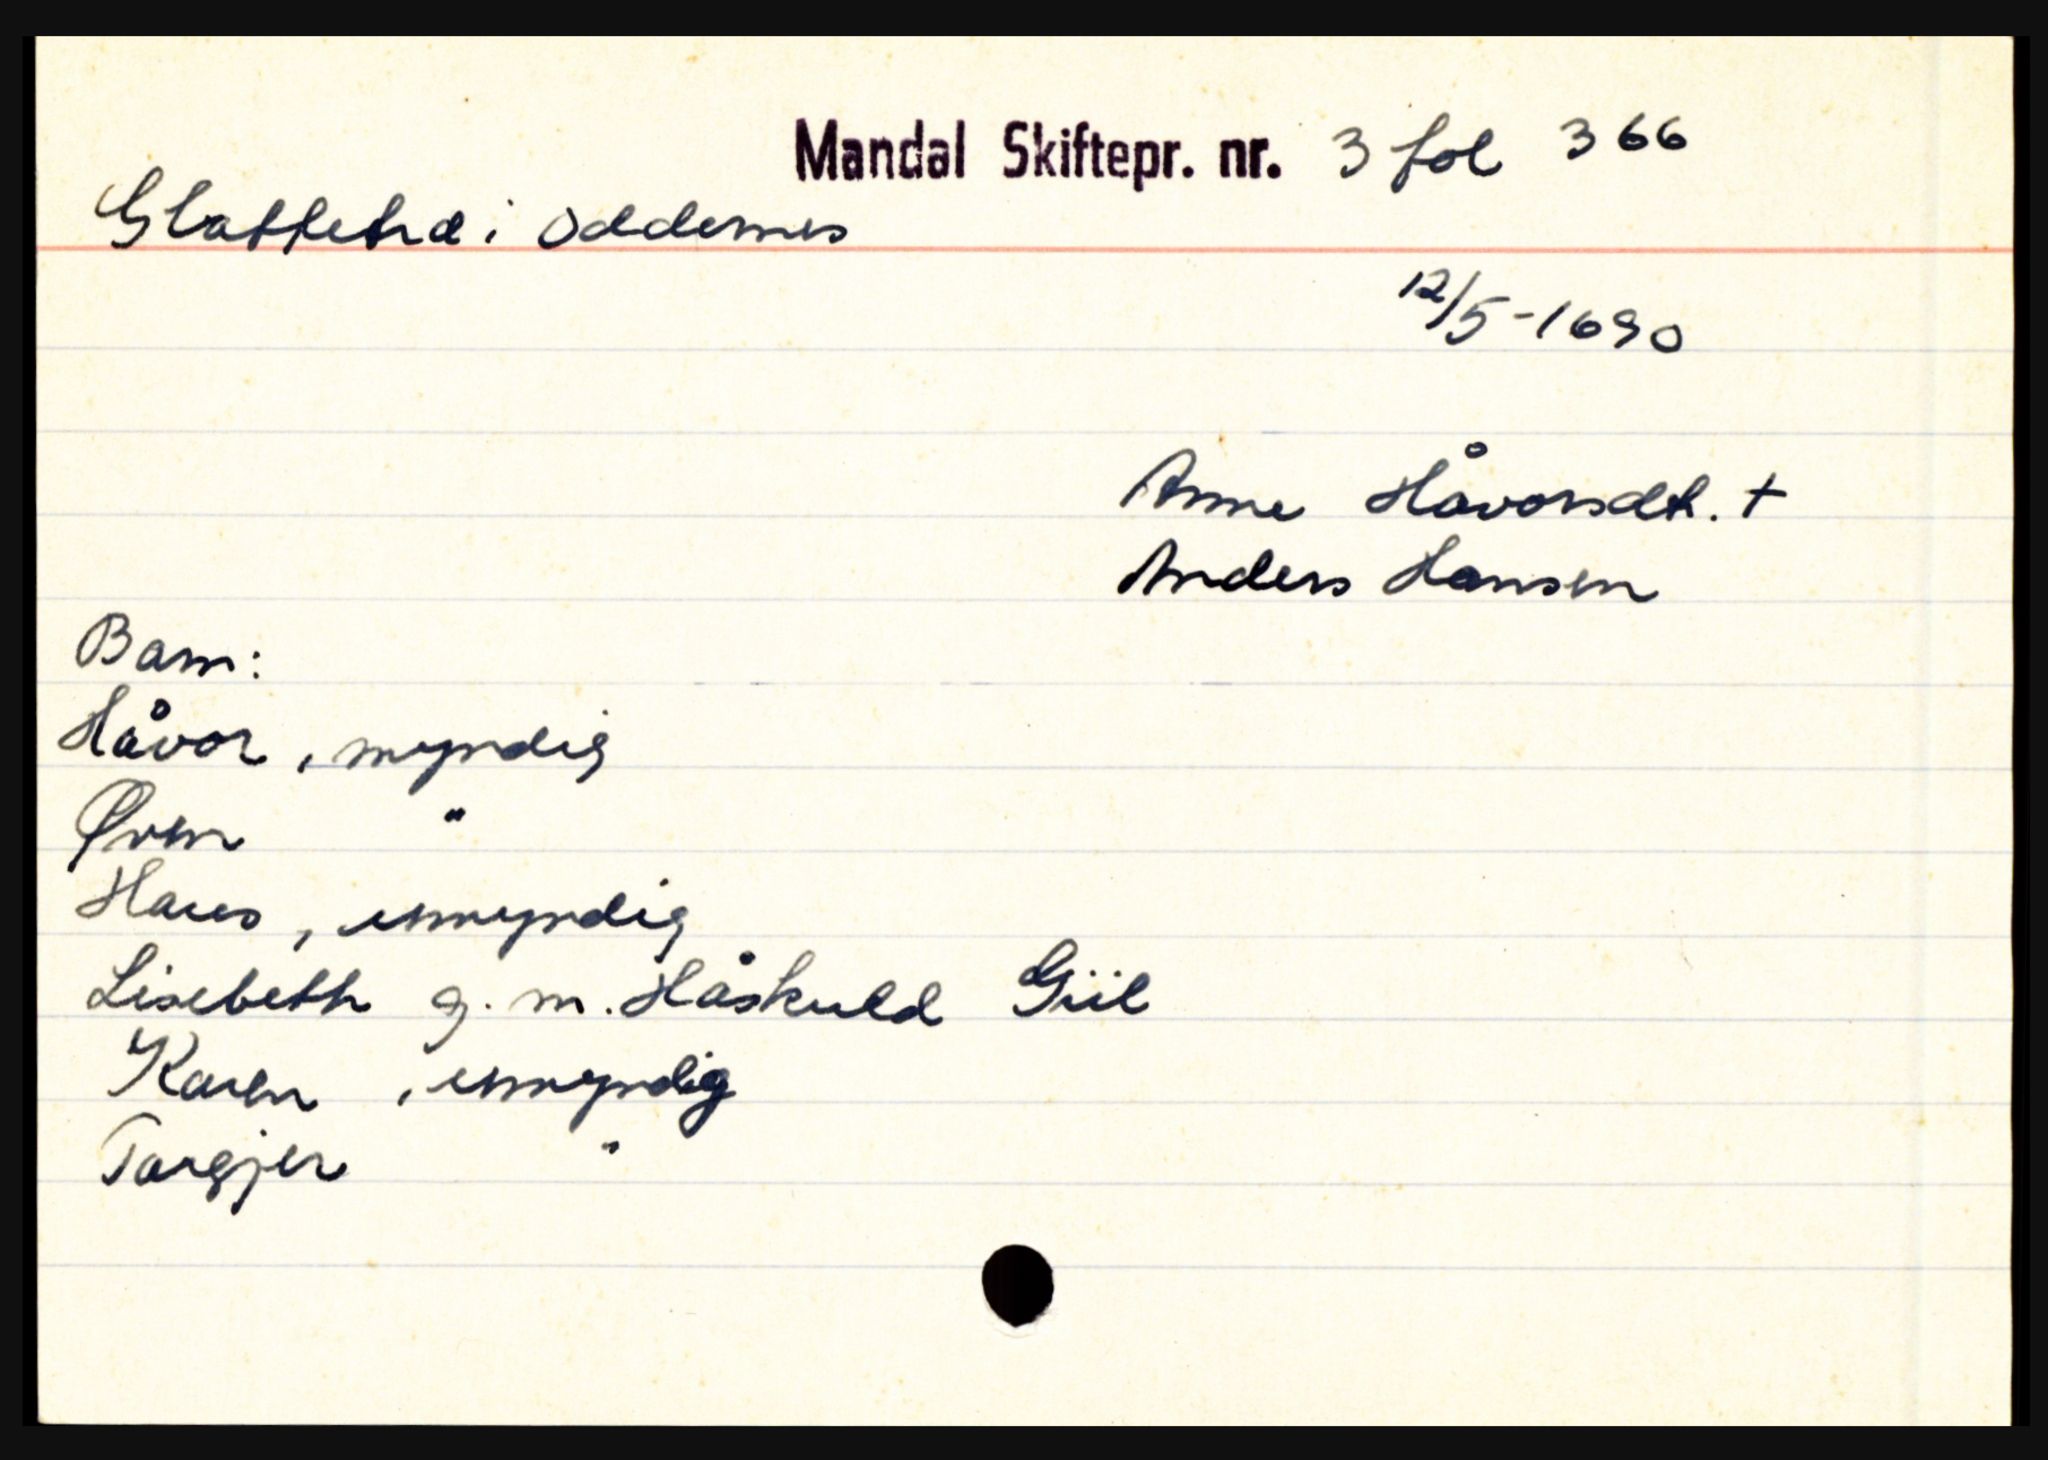 Mandal Skiftepr. nr. 3 fol 366
Glattetre i Oddernes
12/5-1690
Anne Håvorsdt. +
Anders Hansen
Barn:
Håvor, myndig
Øven "
Hans, umyndig
Lisebeth g. m. Håskuld Giil
Karen, umyndig
Targjer "